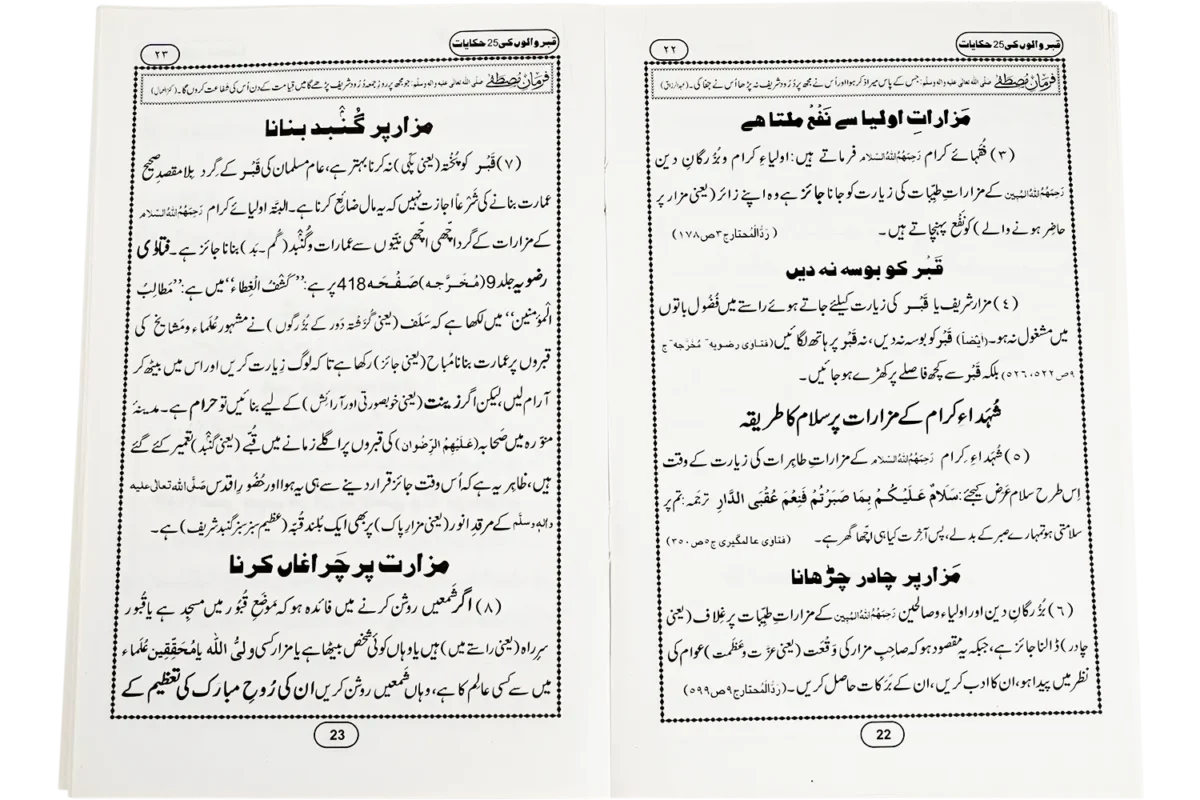 قبر والوں کی 25 حکایات
٢٢
فرمانِ مصطفےٰ صلی اللہ تعالیٰ علیہ والہ وسلم: جس کے پاس میرا ذکر ہوا اور اُس نے مجھ پر دُرُود شریف نہ پڑھا اُس نے جفا کی۔ (عبدالرزاق)
مزاراتِ اولیا سے نَفْع ملتا ہے
(٣) فُقَہائے کرام رَحِمَهُمُ اللهُ السَّلَام فرماتے ہیں: اولیاءِ کرام و بُزُرگانِ دین
رَحِمَهُمُ اللهُ الْمُبِين کے مزاراتِ طیِّبات کی زیارت کو جانا جائز ہے وہ اپنے زائر (یعنی مزار پر
حاضِر ہونے والے) کو نَفْع پہنچاتے ہیں۔ (رَدُّالْمُحتار ج٣ ص١٧٨)
قَبْر کو بوسہ نہ دیں
(٤) مزار شریف یا قَبْر کی زیارت کیلئے جاتے ہوئے راستے میں فُضُول باتوں
میں مشغول نہ ہو۔ (اَیْضاً) قَبْر کو بوسہ نہ دیں، نہ قَبْر پر ہاتھ لگائیں (فتاوی رضویه مُخَرَّجه ج
٩ ص٥٢٢، ٥٢٦) بلکہ قَبْر سے کچھ فاصلے پر کھڑے ہو جائیں۔
شُہَداءِ کرام کے مزارات پر سلام کا طریقہ
(٥) شُہَداءِ کِرام رَحِمَهُمُ اللهُ السَّلَام کے مزاراتِ طاہرات کی زیارت کے وقت
اِس طرح سلام عَرض کیجئے: سَلَامٌ عَلَيْكُمْ بِمَا صَبَرْتُمْ فَنِعْمَ عُقْبَى الدَّارِ ترجَمہ: تم پر
سلامتی ہو تمہارے صبر کے بدلے، پس آخِرت کیا ہی اچّھا گھر ہے۔ (فتاوی عالمگیری ج٥ ص٣٥٠)
مَزار پر چادر چڑھانا
(٦) بُزُرگانِ دین اور اولیاء و صالحین رَحِمَهُمُ اللهُ الْمُبِين کے مزاراتِ طیِّبات پر غِلاف (یعنی
چادر) ڈالنا جائز ہے، جبکہ یہ مقصود ہو کہ صاحِبِ مزار کی وَقْعَت (یعنی عزّت و عَظَمت) عوام کی
نظر میں پیدا ہو، ان کا ادب کریں، ان کے بَرَکات حاصل کریں۔ (رَدُّالْمُحتار ج٩ ص٥٩٩)
22
قبر والوں کی 25 حکایات
٢٣
فرمانِ مصطفےٰ صلی اللہ تعالیٰ علیہ والہ وسلم: جو مجھ پر روزِ جمعہ دُرُود شریف پڑھے گا میں قیامت کے دن اُس کی شفاعت کروں گا۔ (کنزالعمال)
مزار پر گُنبَد بنانا
(٧) قَبْر کو پُختہ (یعنی پکّی) نہ کرنا بہتر ہے، عام مسلمان کی قَبْر کے گِرد بِلا مقصدِ صحیح
عمارت بنانے کی شَرعاً اجازت نہیں کہ یہ مال ضائِع کرنا ہے۔ البتّہ اولیائے کرام رَحِمَهُمُ اللهُ السَّلَام
کے مزارات کے گرد اچّھی اچّھی نیّتوں سے عمارات و گُنبَد (گُم۔بَد) بنانا جائز ہے۔ فتاوٰی
رضویہ جلد 9 (مُخَرَّجہ) صَفْحَہ 418 پر ہے: ’’کَشْفُ الْغِطاء‘‘ میں ہے: ’’مَطَالِبُ
الْمُؤمِنین‘‘ میں لکھا ہے کہ سَلَف (یعنی گُزَشتہ دَور کے بُزُرگوں) نے مشہور عُلَماء و مَشایخ کی
قبروں پر عمارت بنانا مُباح (یعنی جائز) رکھا ہے تاکہ لوگ زِیارت کریں اور اس میں بیٹھ کر
آرام لیں، لیکن اگر زینت (یعنی خوبصورتی اور آرائش) کے لیے بنائیں تو حرام ہے۔ مدینۂ
منوّرہ میں صَحابہ (عَلَيْهِمُ الرِّضْوَان) کی قبروں پر اگلے زمانے میں قُبّے (یعنی گنبد) تعمیر کئے گئے
ہیں، ظاہر یہ ہے کہ اُس وقت جائز قرار دینے سے ہی یہ ہوا اور حُضُورِ اقدس صَلَّی اللہ تعالٰی علیہ
واٰلہٖ وسلَّم کے مرقدِ انور (یعنی مزارِ پاک) پر بھی ایک بلند قُبّہ (عظیم سبز سبز گنبد شریف) ہے۔
مزارت پر چَراغاں کرنا
(٨) اگر شمعیں روشن کرنے میں فائدہ ہو کہ مَوضَعِ قُبُور میں مسجِد ہے یا قُبور
سرِ راہ (یعنی راستے میں) ہیں یا وہاں کوئی شخص بیٹھا ہے یا مزار کسی ولیُّ اللہ یا مُحَقِّقِین عُلَماء
میں سے کسی عالِم کا ہے، وہاں شمعیں روشن کریں ان کی رُوحِ مبارک کی تعظیم کے
23